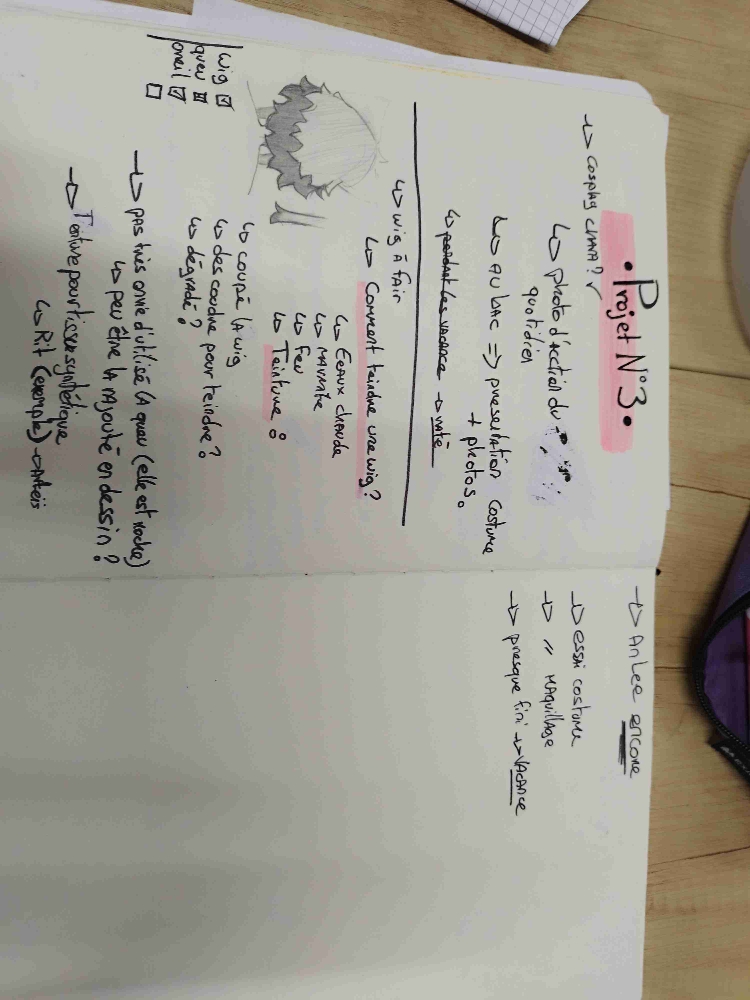 • Projet N°3 •
→ Cosplay CHARA? ✓
↳ photo d'acction du
quotidien
↳ AU LAC => presentation costume
+ photos.
↳ pendant les vacance → raté
↳ wig à fair
↳ Comment teindre une wig?
↳ Eeaux chaude
↳ marmite
↳ Feu
↳ Teinture
↳ coupé la wig
↳ des coudre pour teindre?
↳ dégradé?
wig ☑
queu ☒
oreil ☑
☐
→ pas très envie d'utilisé la queu (elle est moche)
↳ peu être la rajouté en dessin?
→ Teinture pour tissu synthétique
↳ Rit (exemple)
→ An Lee encore
→ essai costume
→ " maquillage
→ presque fini → vacance